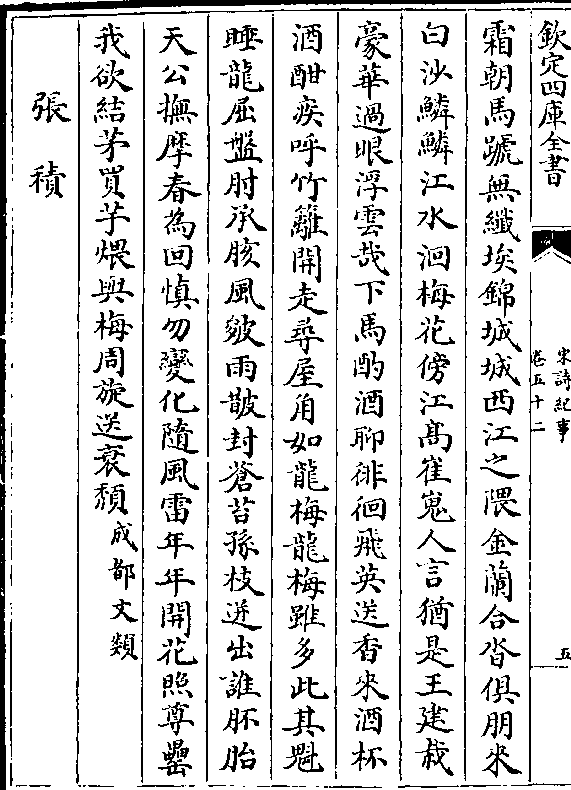 欽定四庫全書
宋詩紀事
卷五十二
五
霜朝馬蹏無纖埃錦城城西江之隈金蘭合沓俱朋來
白沙鱗鱗江水洄梅花傍江髙崔嵬人言猶是王建栽
豪華過眼浮雲哉下馬酌酒聊徘徊飛英送香來酒杯
酒酣疾呼竹籬開走尋屋角如龍梅龍梅雖多此其魁
睡龍屈盤肘承胲風皴雨皵封蒼苔孫枝迸出誰胚胎
天公撫摩春為回慎勿變化隨風雷年年開花照尊罍
我欲結茅買芋煨與梅周旋送衰頽成都文類
張積